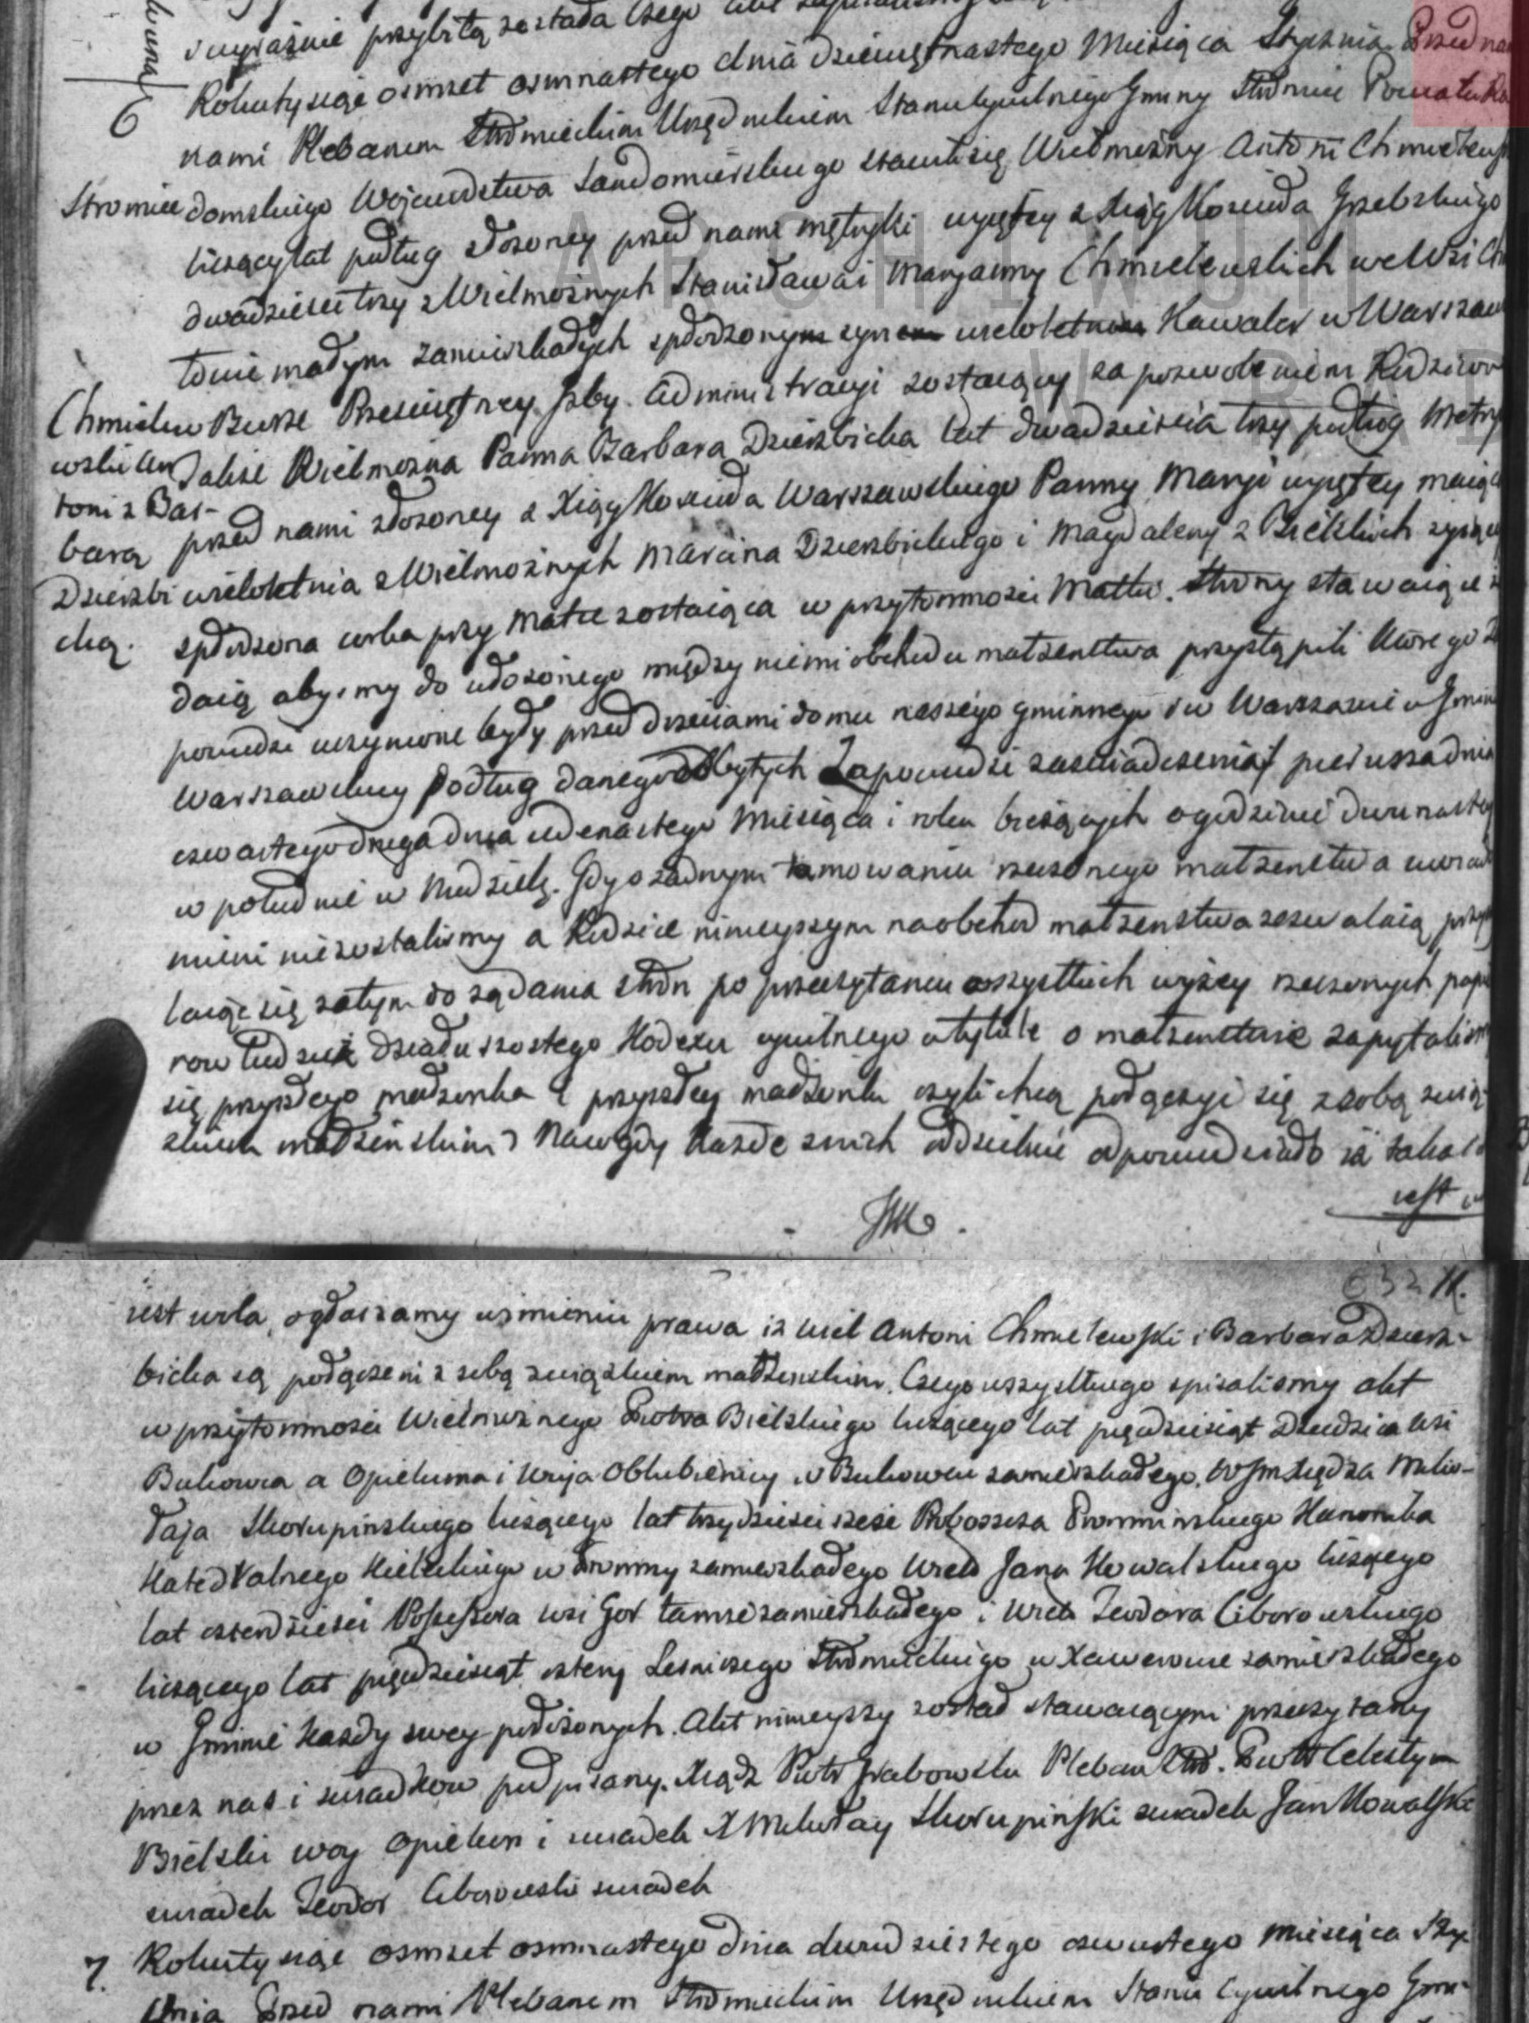 wyraźnie przybitą została Czego Akt
6
Roku tysiąc osmset osmnastego dnia dziewiętnastego Miesiąca Stycznia Przed na
nami Plebanem Stromieckim Urzędnikiem Stanu Cywilnego Gminy Stromiec Powiatu Ra
Stromiec
domskiego Wojewodztwa Sandomierskiego stawili się Wielmożny Antoni Chmielewsk
liczący lat podług złożoney przed nami metryki wyiętey z Xiąg Kościoła Grzebskiego
dwadzieścia trzy z Wielmożnych Stanisława i Maryanny Chmielewskich we Wsi Ch
towie małym zamieszkałych spłodzonym synem wieloletnim Kawaler w Warszaw
w Biorze Przeświętney Izby Administracyi zostaiący za pozwoleniem Rodzicow
Chmielewski Antoni z Barbarą Dzierzbicką.
Także Wielmożna Panna Barbara Dzierzbicka lat dwadzieścia trzy podług Metry
przed nami złożoney z Xiąg Kościoła Warszawskiego Panny Maryi wyiętey maiąca
wieloletnia z Wielmożnych Marcina Dzierzbickiego i Magdaleny z Bielskich
spłodzona corka przy Matce zostaiąca w przytomności Matki. Strony stawaiące
daią abysmy do ułożonego między niemi obchodu małżeństwa przystąpili ktorego Za
powiedzi uczynione były przed drzwiami domu naszego gminnego i w Warszawie w Gmin
Warszawskiey podług danego odbytych Zapowiedzi zaswiadczenia pierwsza dnia
czwartego druga dnia iedenastego Miesiąca i roku bieżących o godzinie dwunastey
w południe w Niedzielę. Gdy o żadnym tamowaniu rzeczonego małżeństwa uwiado
mieni niezostalismy a Rodzice ninieyszym na obchod małżeństwa zezwalaią, przy
laiąc się zatym do żądania stron po przeczytaniu wszystkich wyżey rzeczonych papie
row tudzież działu szostego Kodexu cywilnego w tytule o małżeństwie zapytalism
się przyszłego małżonka i przyszłey małżonki czyli chcą połączyć się z sobą związ
zkiem małżeńskim? Na co gdy każde z nich oddzielnie odpowiedziało iż taka ich
iest w
iest wola, ogłaszamy w imieniu prawa iż Wiel Antoni Chmielewski i Barbara Dzierz-
bicka są połączeni z sobą związkiem małżeńskim. Czego wszystkiego spisalismy akt
w przytomności Wielmożnego Piotra Bielskiego liczącego lat pięćdziesiąt Dziedzica wsi
Bukowca a Opiekuna i wuja Oblubienicy w Bukowcu zamieszkałego. Xiędza Miko-
łaja Skorupińskiego liczącego lat trzydzieści sześć Proboszcza Kanonika
Katedralnego Kieleckiego w zamieszkałego Jana Kowalskiego liczącego
lat czterdzieści Possessora wsi Gor tamże zamieszkałego i Teodora Ciborowskiego
liczącego lat pięćdziesiąt cztery Lesniczego Stromieckiego w Xawerowie zamieszkałego
w Gminie każdy swey położonych. Akt ninieyszy został stawaiącym przeczytany
przez nas i swiadkow podpisany. Xiądz Piotr Grabowski Pleban Stro. Piotr Celestyn
Bielski woy opiekun i swiadek X Mikołay Skorupiński swiadek Jan Kowalski
swiadek Teodor Ciborowski swiadek
7. Roku tysiąc osmset osmnastego dnia dwudziestego czwartego Miesiąca Stycz
nia Przed nami Plebanem Stromieckim Urzędnikiem Stanu Cywilnego Gmi-